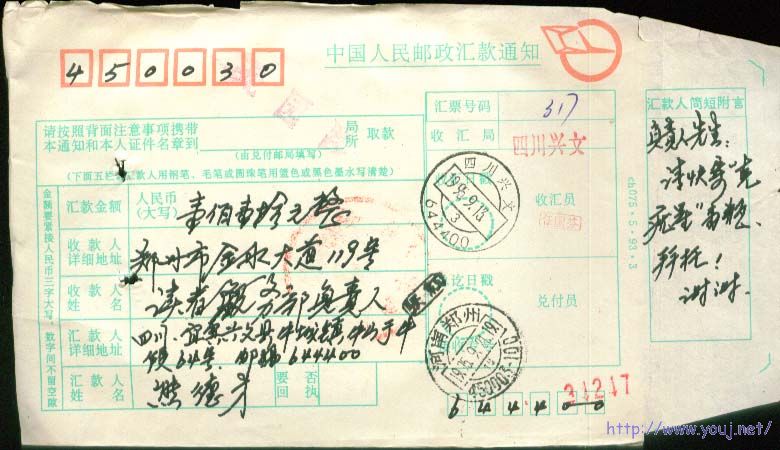 450030
中国人民邮政汇款通知
请按照背面注意事项携带
本通知和本人证件名章到
局
所
取款
(由兑付邮局填写)
(下面五栏汇款人用钢笔、毛笔或圆珠笔用蓝色或黑色墨水写清楚)
汇票号码
317
收汇局
四川兴文
收汇日戳
四川兴文
644400
收汇员
汇款金额
人民币
(大写)
壹佰壹拾元整
收款人
详细地址
郑州市金水大道119号
收款人
姓名
读者服务部负责人
汇款人
详细地址
四川宜宾兴文县
镇64号 邮编644400
汇款人
姓名
熊德才
要 否
回 执
讫日戳
兑付员
河南郑州
644400
31217
金额要紧接人民币三字大写,数字间不留空隙
汇款人简短附言
负责人先生:
请快寄
拜托!
谢谢.
cb075·5·93·3
http://www.youj.net/